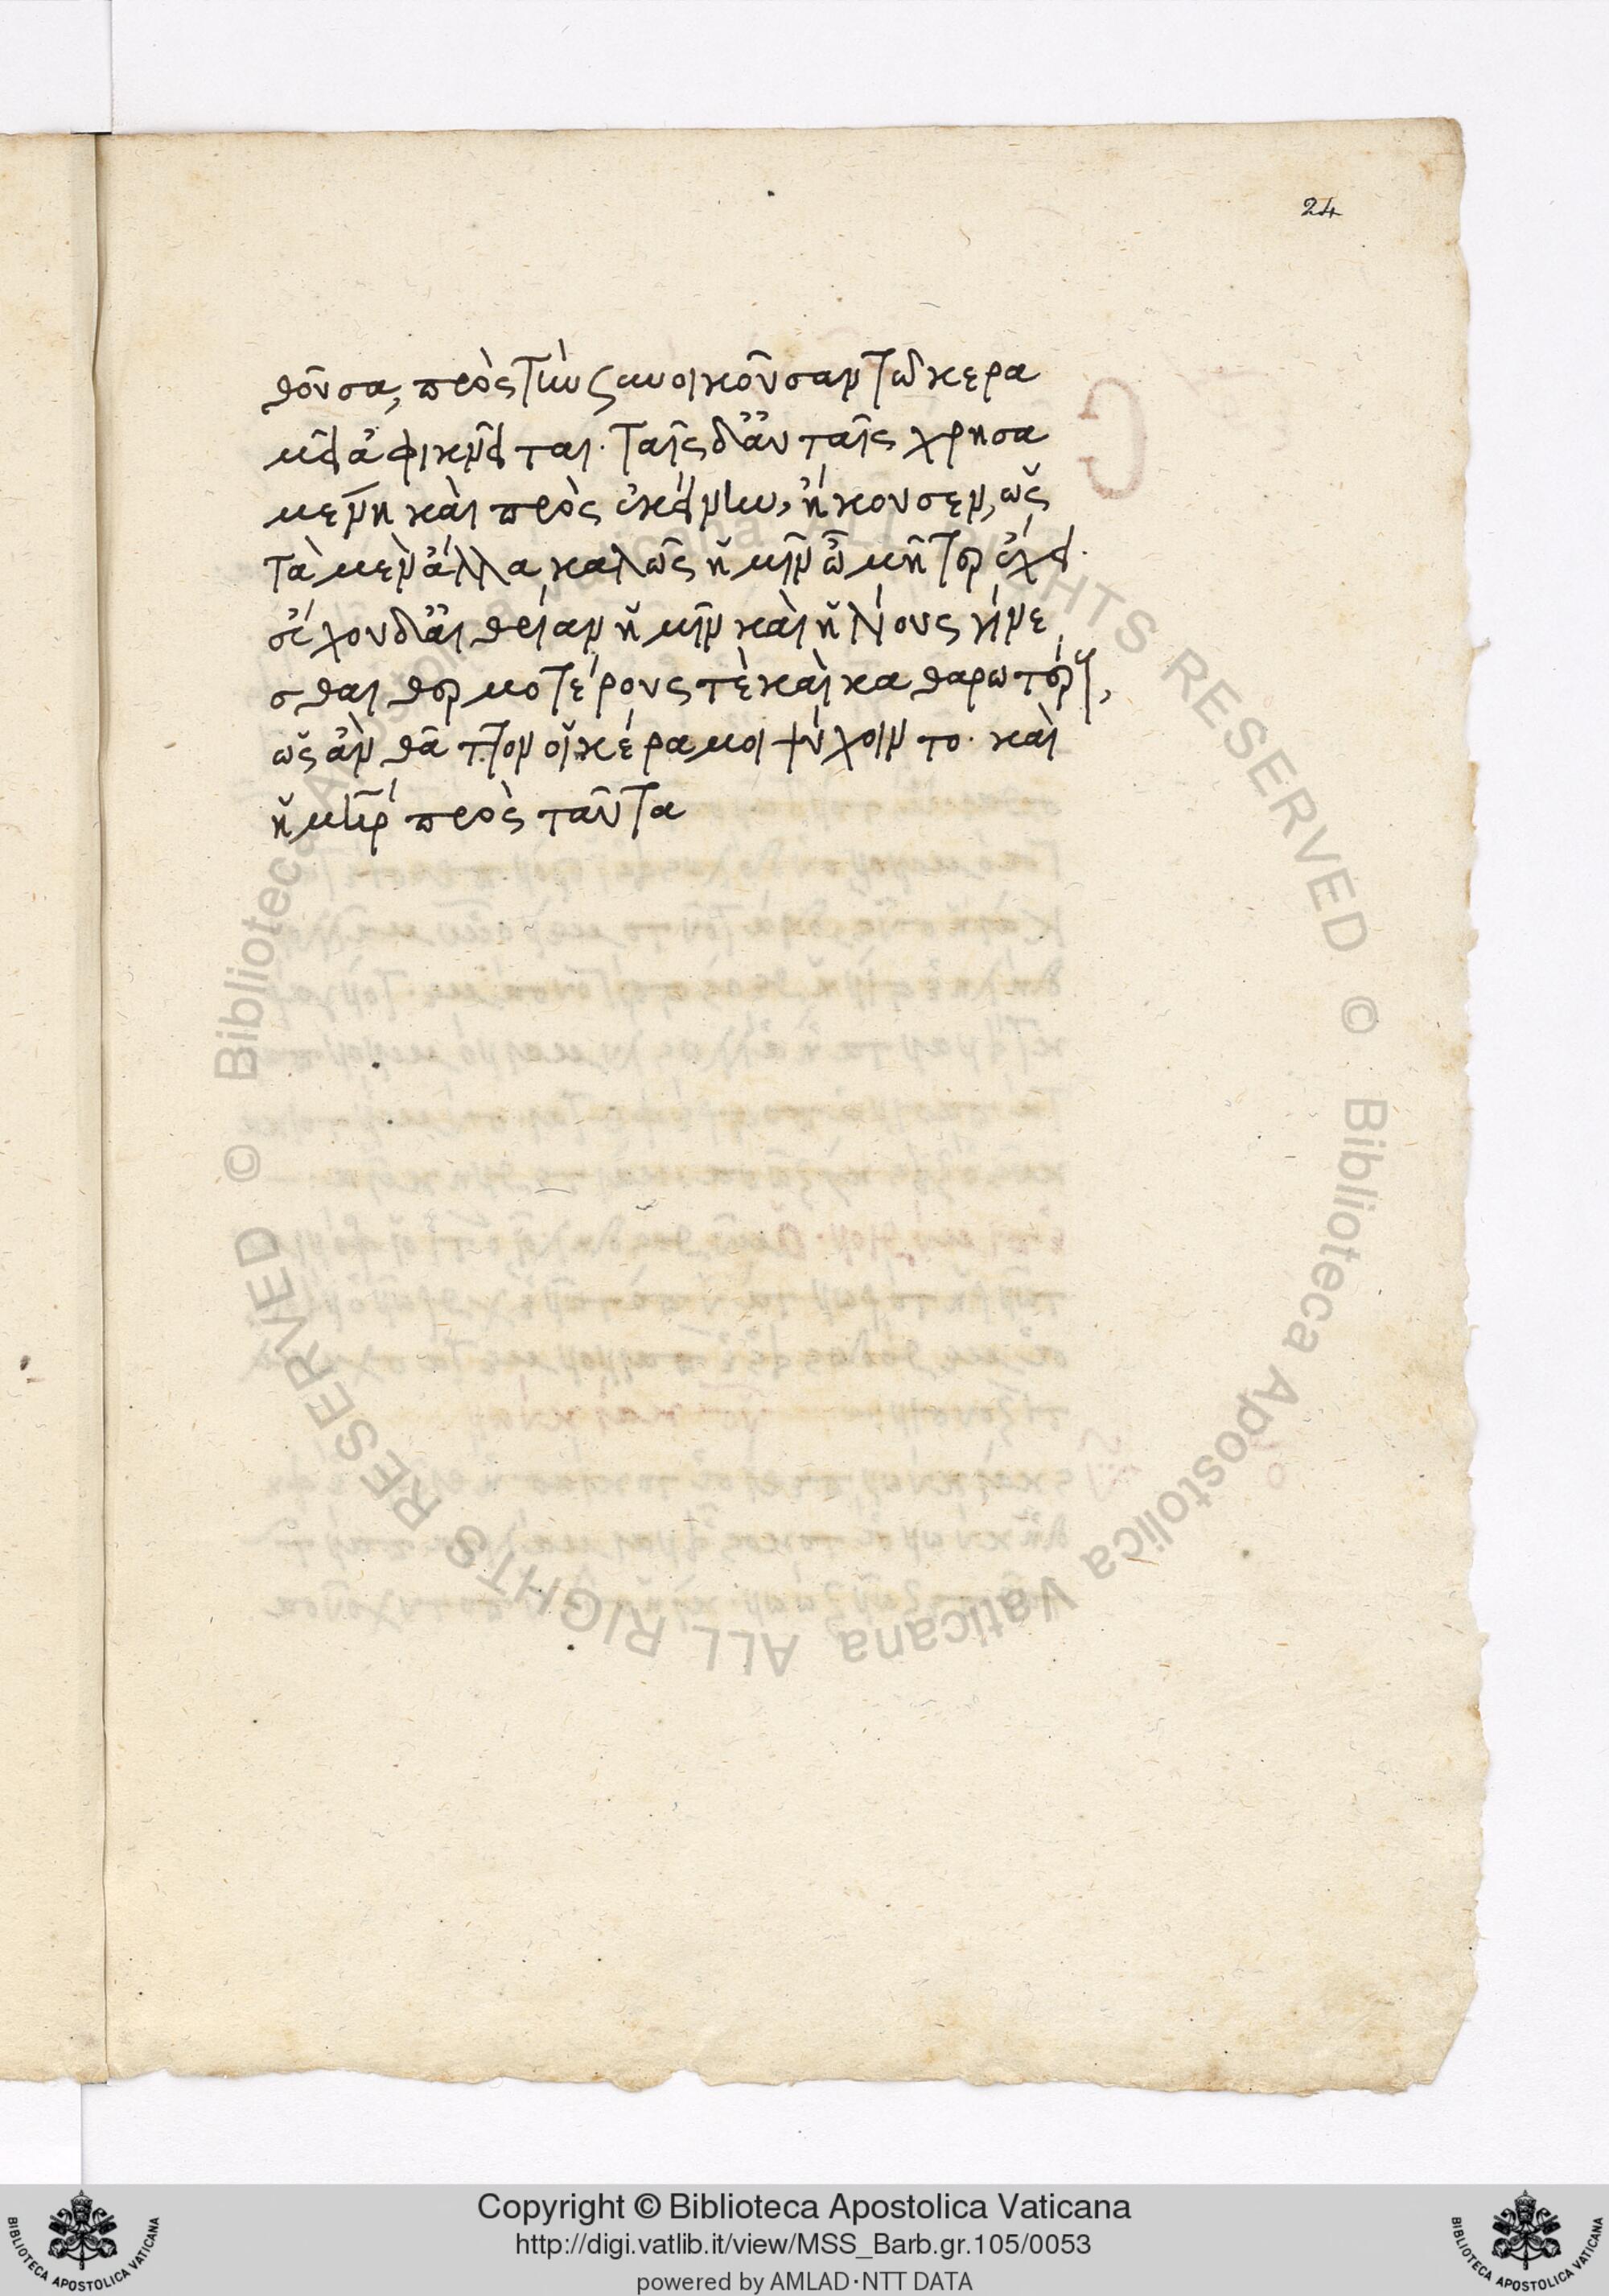 24
θοῦσα, πρὸς τὴν συνοικοῦσαν τῶ κερα
μεῖ ἀφικνεῖται. ταῖς δ' αὐταῖς χρησα
μένη καὶ πρὸς ἐκείνην, ἤκουσεν, ὡς
τὰ μὲν ἄλλα καλῶς ἡμῖν ὦ μῆτερ ἔχει.
σὲ χοῦ δ' αἰθρίαν ἡμῖν καὶ ἡλίους γίνε
σθαι θερμοτέρους τὲ καὶ καθαρωτέρους,
ὡς ἂν θᾶττον οἱ κέραμοι ψύχοιντο. καὶ
ἡ μήτηρ πρὸς ταῦτα
© Biblioteca Apostolica Vaticana ALL RIGHTS RESERVED © Biblioteca Apostolica Vaticana ALL RIGHTS RESERVED
Copyright © Biblioteca Apostolica Vaticana
http://digi.vatlib.it/view/MSS_Barb.gr.105/0053
powered by AMLAD·NTT DATA
BIBLIOTECA APOSTOLICA VATICANA
BIBLIOTECA APOSTOLICA VATICANA